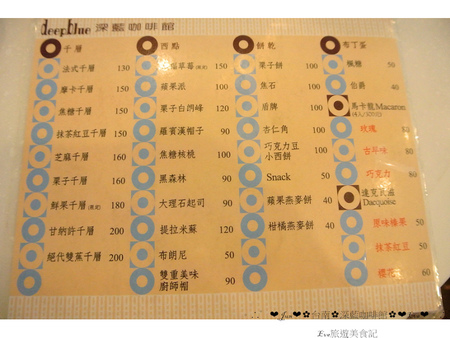 deepblue 深藍咖啡館
千層
法式千層 130
摩卡千層 150
焦糖千層 150
抹茶紅豆千層 150
芝麻千層 160
栗子千層 160
鮮果千層 180
甘納許千層 200
絕代雙蕉千層 200
西點
福草莓 150
蘋果派 100
栗子白朗峰 120
羅賓漢帽子 90
焦糖核桃 100
黑森林 90
大理石起司 90
提拉米蘇 90
布朗尼 50
雙重美味
廚師帽 90
餅乾
栗子餅 100
焦石 100
盾牌 100
杏仁角 100
巧克力豆
小西餅 100
Snack 50
蘋果燕麥餅 40
柑橘燕麥餅 40
布丁蛋
楓糖 50
伯爵 40
馬卡龍Macaron
玫瑰
古早味 80
巧克力 60
達克瓦滋
Dacquoise
原味榛果 50
抹茶紅豆 50
櫻花 60
台南 深藍咖啡館
Eva旅遊美食記